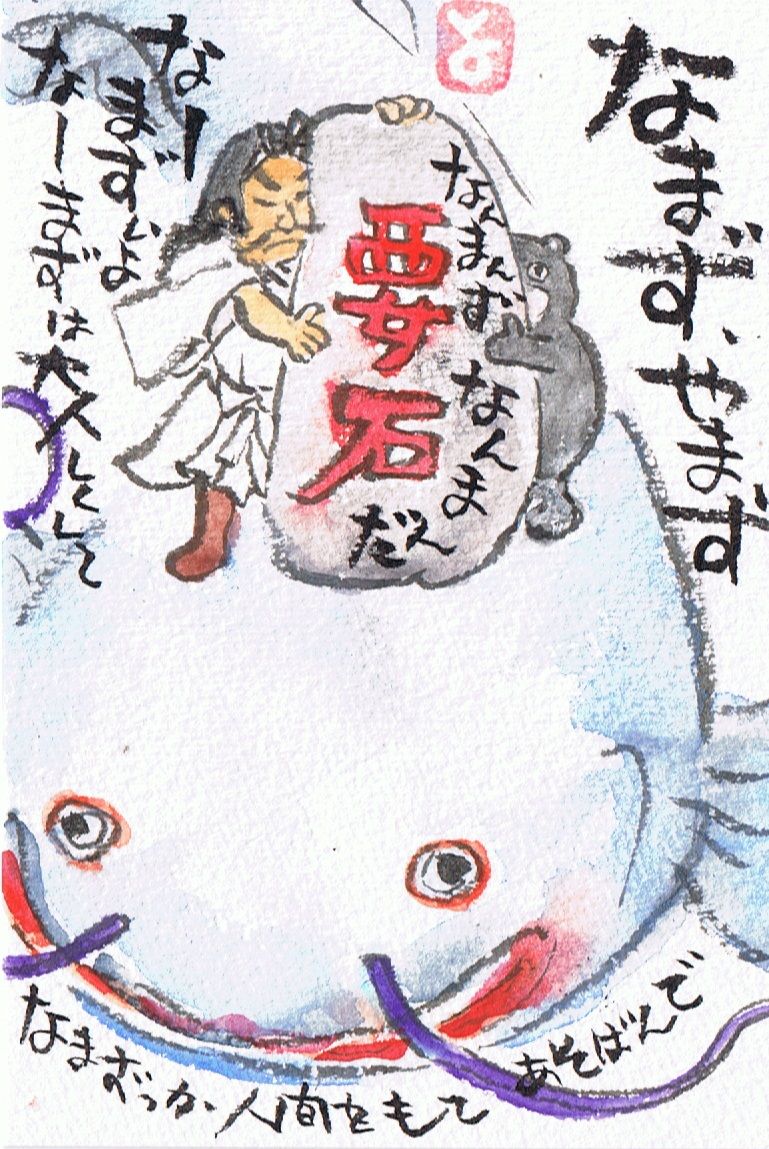 なまず、やまず
よ
なんまんず
なんま
だん
要石
なー
まずいよ
なーまずは大人しくして
なまずっか人間をもて
あそばんで